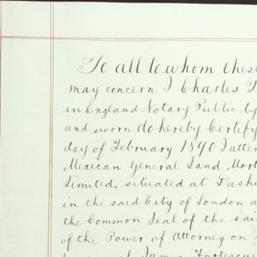 To all to whom these
may concern I Charles
in England Notary Public by
and sworn do hereby Certify
day of February 1890 I atten
Mexican General Land Mort
Limited, situated at Dashw
in the said City of London a
the Common Seal of the sai
of the Power of Attorney on
James Fortescue